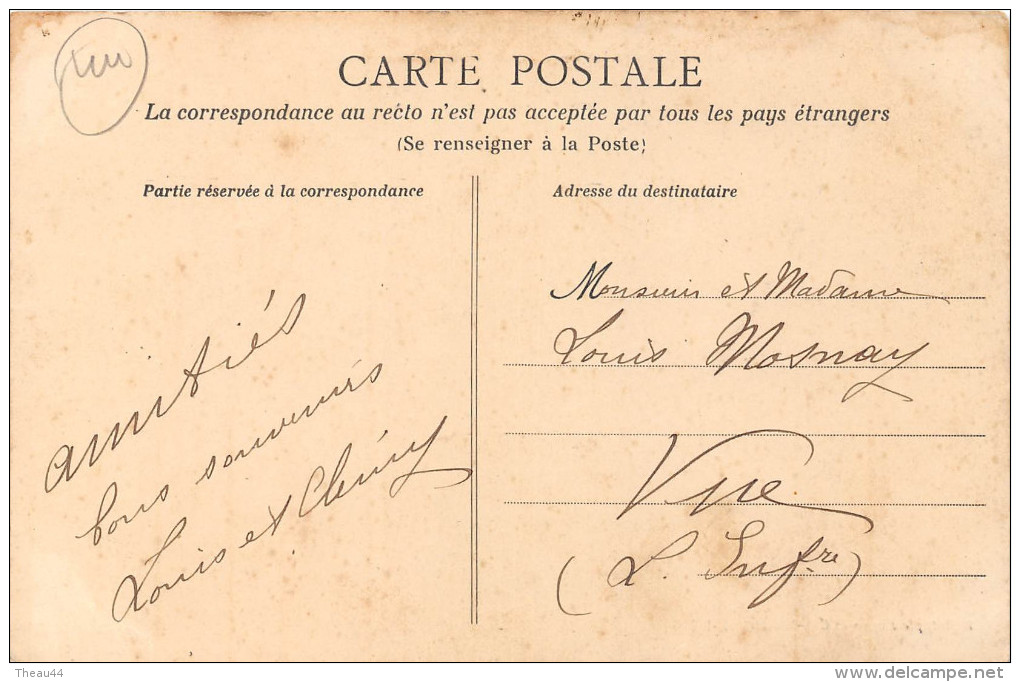 CARTE POSTALE
La correspondance au recto n'est pas acceptée par tous les pays étrangers
(Se renseigner à la Poste)
Partie réservée à la correspondance
amitiés
bons souvenirs
Louis et
Adresse du destinataire
Monsieur et Madame
Louis Mosnay
Vue
(L. Inf.re)
Theau44
www.delcampe.net